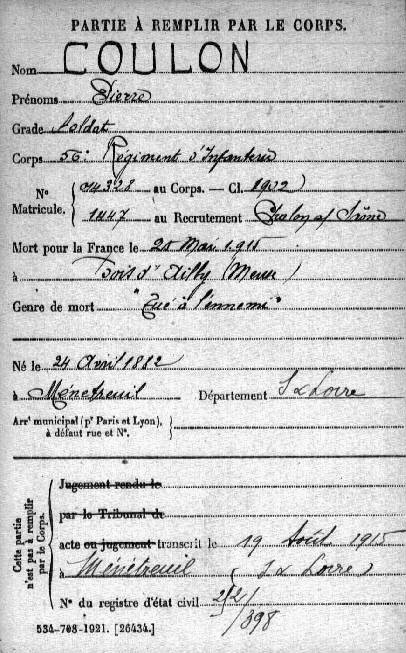 PARTIE À REMPLIR PAR LE CORPS.
Nom COULON
Prénoms Pierre
Grade Soldat
Corps 56e Régiment d'Infanterie
N° Matricule. 04328 au Corps. — Cl. 1902
1447 au Recrutement Chalon s/ Saône
Mort pour la France le 20 Mai 1915
à Bois d'Ailly (Meuse)
Genre de mort "Tué à l'ennemi"
Né le 24 Avril 1882
à Ménetreuil Département S & Loire
Arrt municipal (pr Paris et Lyon), à défaut rue et N°.
Cette partie n'est pas à remplir par le Corps.
Jugement rendu le
par le Tribunal de
acte ou jugement transcrit le 19 Août 1915
à Ménétreuil (S & Loire)
N° du registre d'état civil
534-708-1921. [26434.]